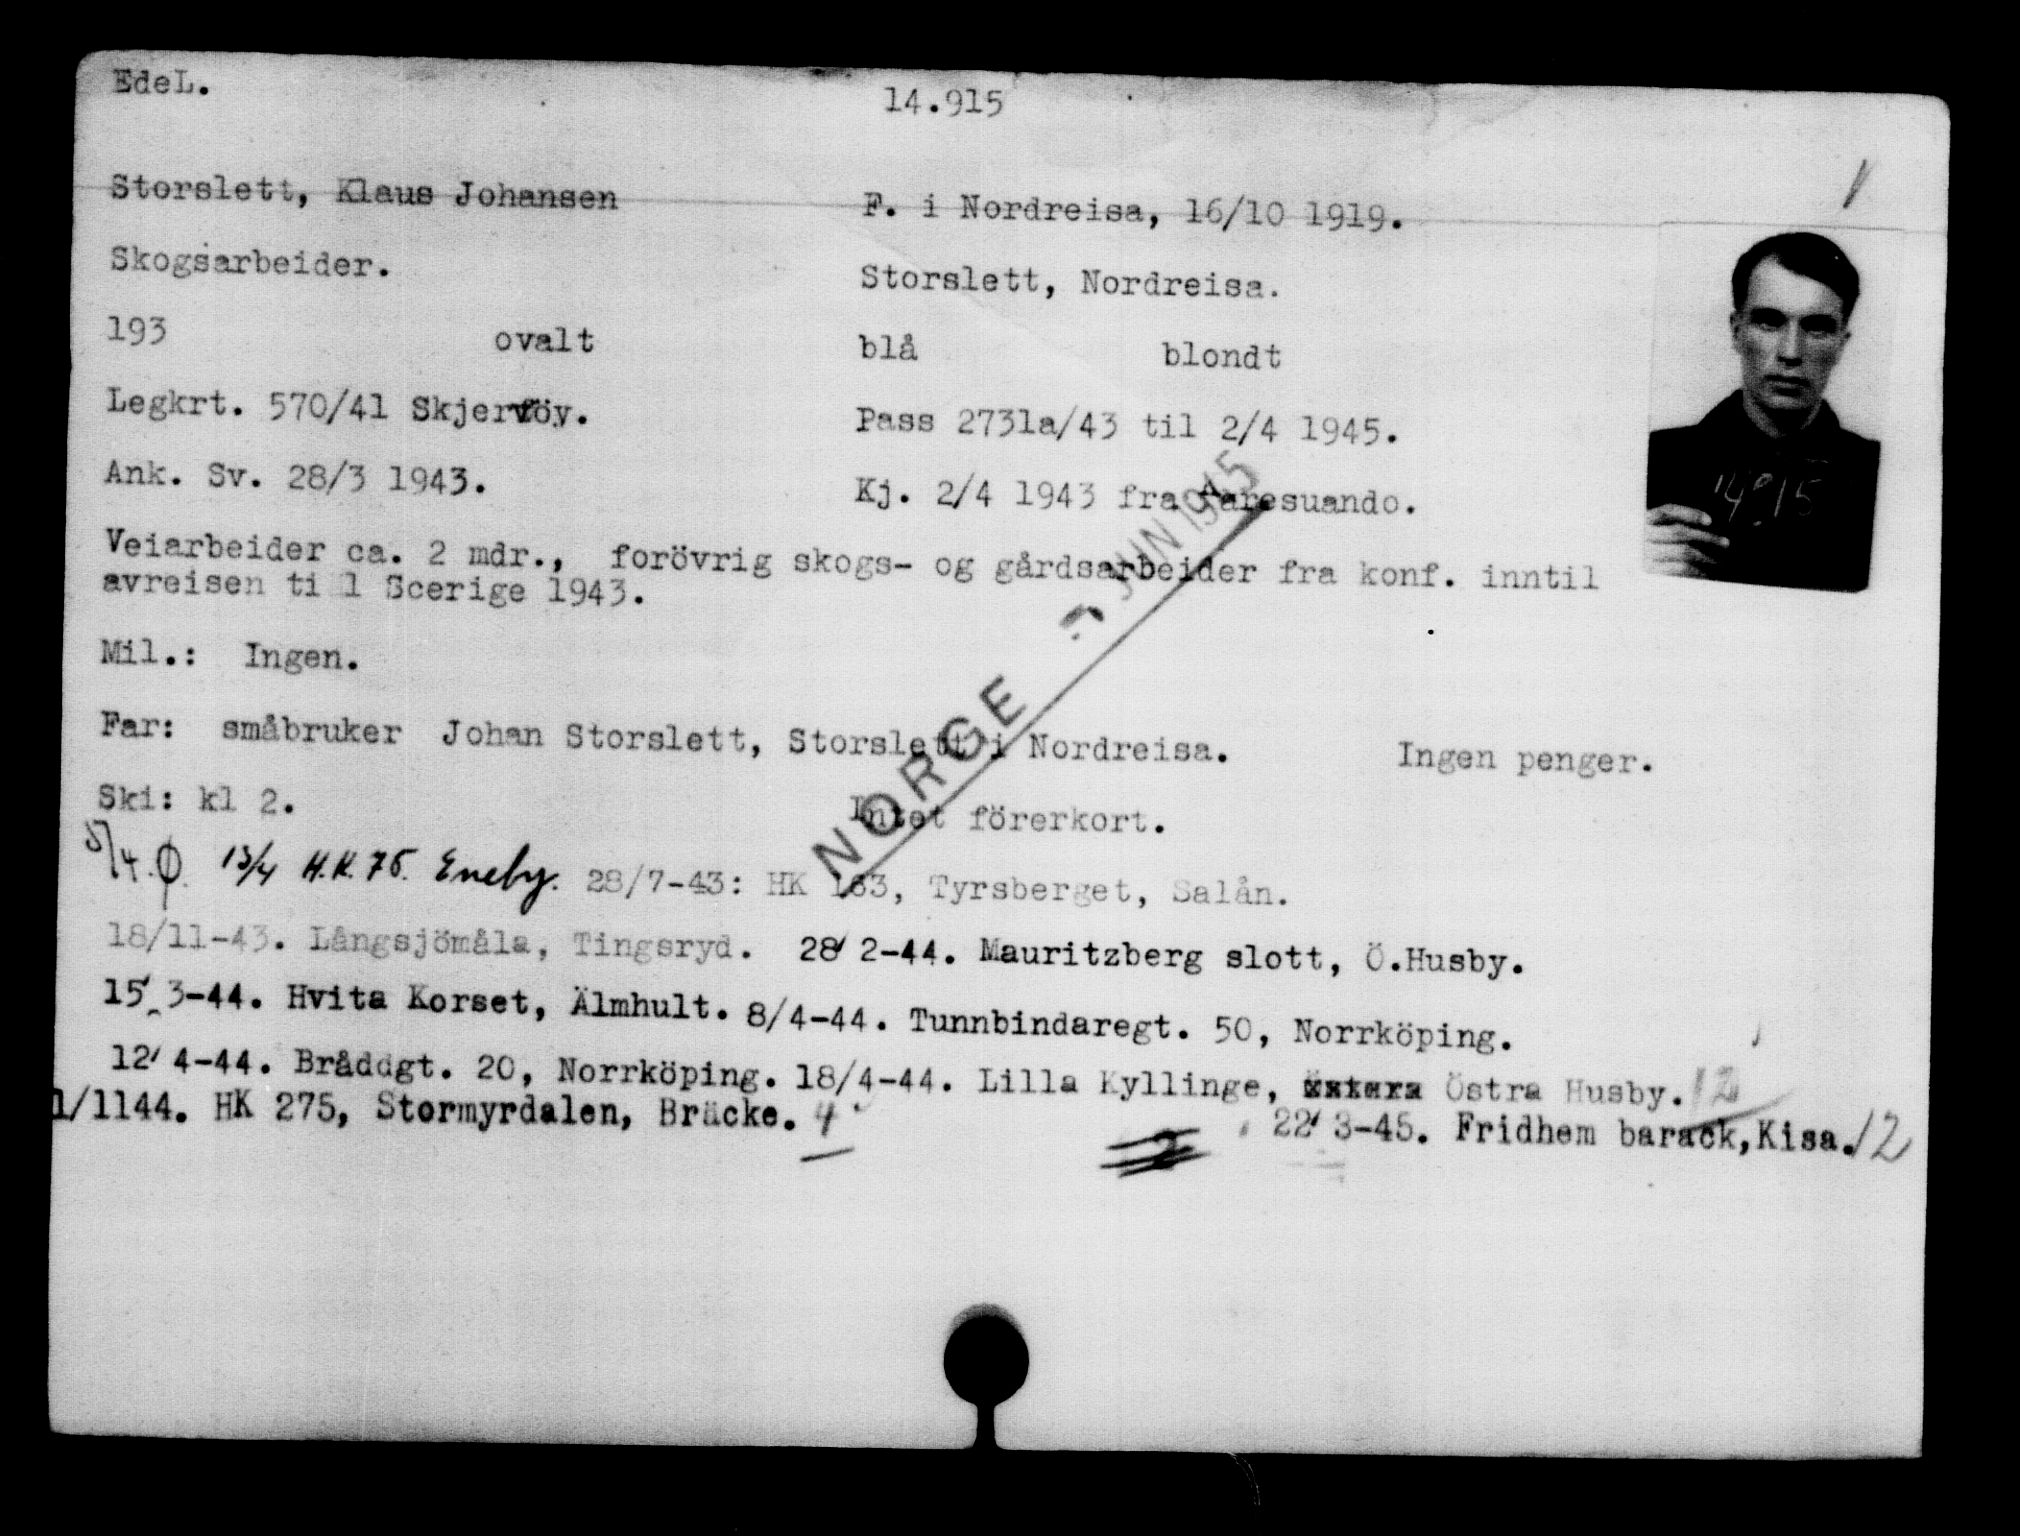 EdeL. 14.915
Storslett, Klaus Johansen F. i Nordreisa, 16/10 1919.
Skogsarbeider. Storslett, Nordreisa.
193 ovalt blå blondt
Legkrt. 570/41 Skjervöy. Pass 2731a/43 til 2/4 1945.
Ank. Sv. 28/3 1943. Kj. 2/4 1943 fra Karesuando.
Veiarbeider ca. 2 mdr., forövrig skogs- og gårdsarbeider fra konf. inntil
avreisen ti l Scerige 1943.
Mil.: Ingen.
Far: småbruker Johan Storslett, Storslett i Nordreisa. Ingen penger.
Ski: kl 2. Intet förerkort.
NORGE JUN 1945
5/4. Ø. 13/4 H.K. 75. Eneby. 28/7-43: HK 163, Tyrsberget, Salån.
18/11-43. Långsjömåla, Tingsryd. 28/ 2-44. Mauritzberg slott, Ö.Husby.
15/ 3-44. Hvita Korset, Älmhult. 8/4-44. Tunnbindaregt. 50, Norrköping.
12/ 4-44. Bråddgt. 20, Norrköping. 18/4-44. Lilla Kyllinge, Östra Husby. 12
1/1144. HK 275, Stormyrdalen, Bräcke. 4 2 22/ 3-45. Fridhem barack, Kisa. 12
14915